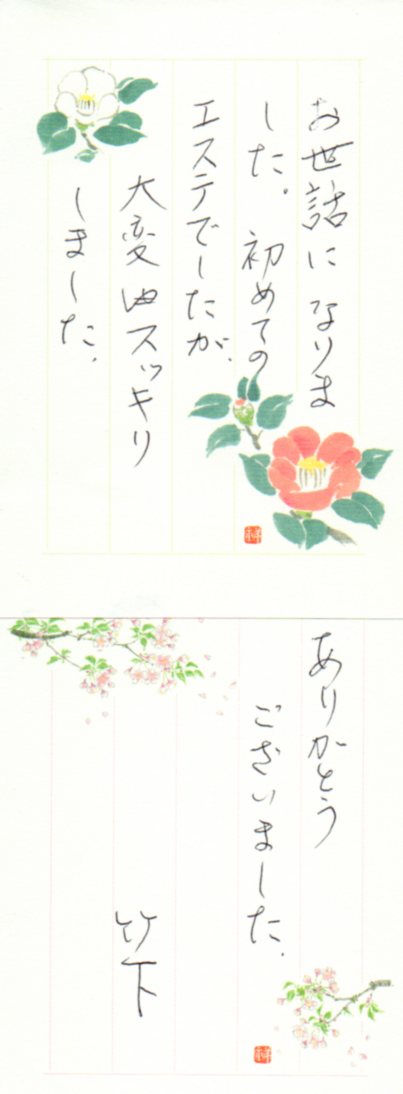 お世話になりま
した。初めての
エステでしたが、
大変スッキリ
しました。
ありがとう
ございました。
竹下